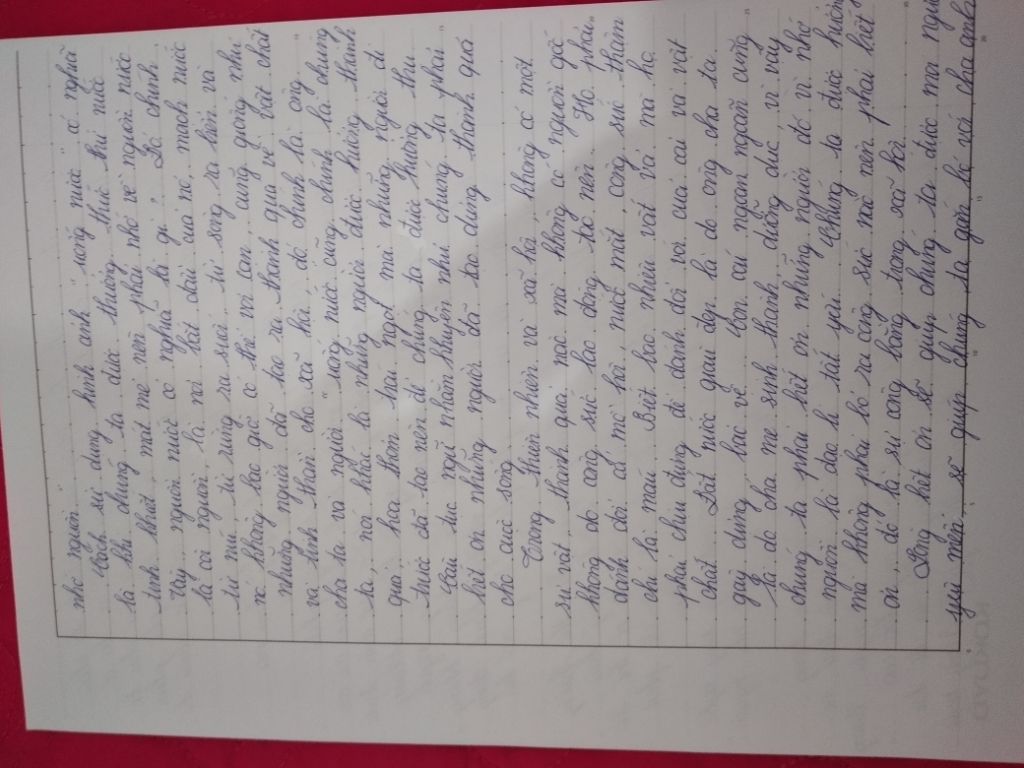 nhớ nguồn".
Cách sử dụng hình ảnh "uống nước" có nghĩa
là khi chúng ta được thưởng thức thứ nước
tinh khiết, mát mẻ nên phải nhớ về nguồn nước
vậy nguồn nước có nghĩa là gì". Đó chính
là cội nguồn, là nơi bắt đầu của nó, mạch nước
từ núi, từ rừng ra suối, từ sông ra biển và
nó không bao giờ có thể vơi cạn, cũng giống như
những người đã tạo ra thành quả về vật chất
và tinh thần cho xã hội đó chính là ông
cha ta và người "uống" nước cũng chính là chúng
ta, nói khác là những người được hưởng thành
quả, hoa thơm trái ngọt mà những người đi
trước đã tạo nên để chúng ta được hưởng thụ.
Câu tục ngữ nhằm khuyên nhủ chúng ta phải
biết ơn những người đã tạo dựng thành quả
cho cuộc sống.
Trong thiên nhiên và xã hội, không có một
sự vật, thành quả nào mà không có nguồn gốc
không do công sức lao động tạo nên. Họ phải
đánh đổi cả mồ hôi, nước mắt, công sức thậm
chí là máu. Biết bao nhiêu vất vả mà họ
phải chịu đựng để dành đổi với của cải và vật
chất. Đất nước giàu đẹp là do ông cha ta
gây dựng, bảo vệ. Con cái ngoan ngoãn cũng
là do cha mẹ sinh thành, dưỡng dục vì vậy
chúng ta phải biết ơn những người đó vì nhớ
nguồn là đạo lí tất yếu. Chúng ta được hưởng
mà không phải bỏ ra công sức nào nên phải biết
ơn, đó là sự công bằng trong xã hội.
Lòng biết ơn sẽ giúp chúng ta được mọi người
yêu mến, sẽ giúp chúng ta gắn bó với cha anh